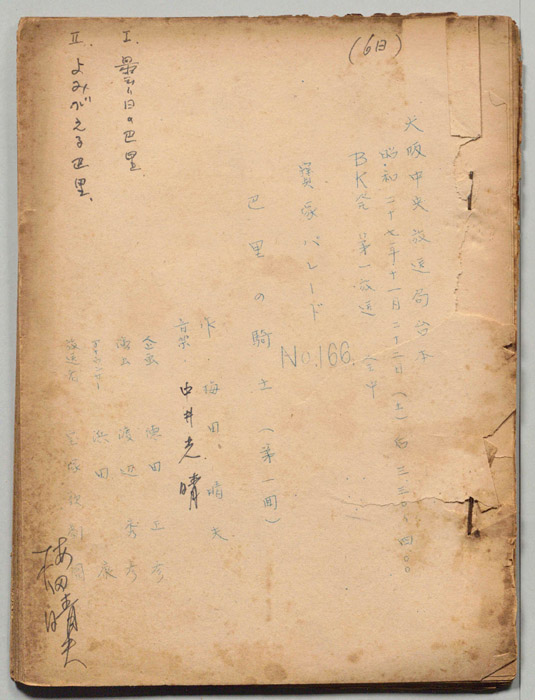 (6日)
大阪中央放送局台本
昭和二十七年十一月二十二日(土)后三.三〇-四.〇〇
BK発 第一放送 全中
宝塚パレード
No.166
巴里の騎士(第一回)
作 梅田 晴夫
音楽 中井光晴
企画
演出 渡辺
浜田
放送者 宝塚歌劇団
I.
II. よみがえる巴里.
梅田晴夫